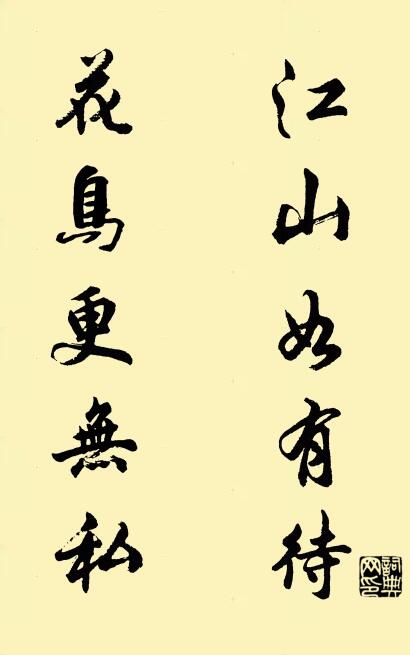 江山如有待
花鳥更無私
詞典网印